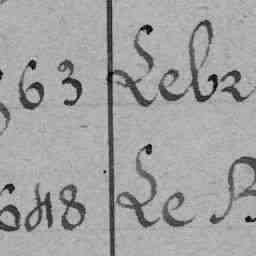 63 Lebr
648 Le B